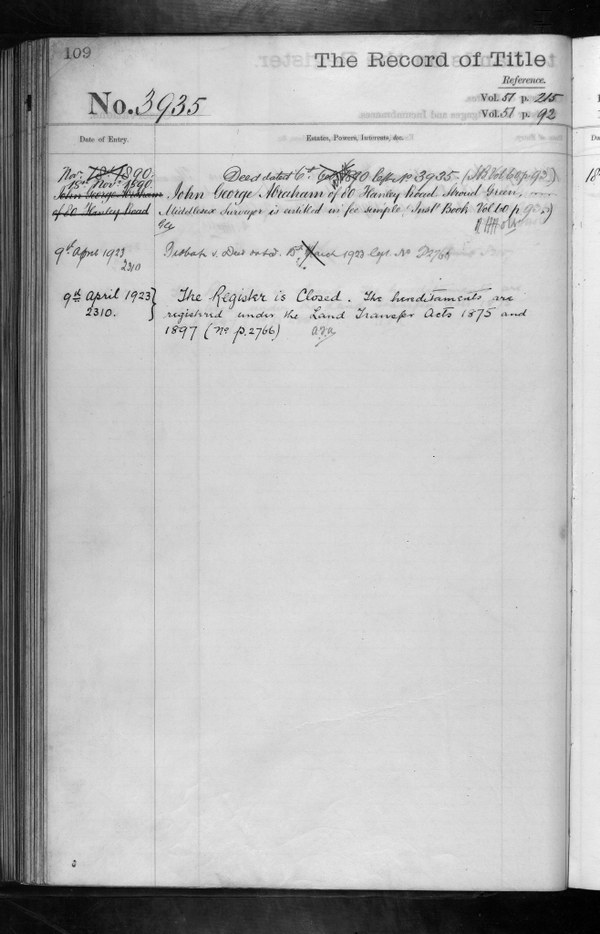 109
The Record of Title
Reference.
No. 3935
Vol. 51 p. 215
Vol. 51 p. 92
Date of Entry.
Estates, Powers, Interests, &c.
Nov. 1890.
Deed dated 6th 1890 No 3935 (IB Vol 60 p 93)
15th Nov. 1890.
John George Abraham
John George Abraham of 80 Hanley Road Stroud Green,
of 80 Hanley Road
Middlesex Surveyor is entitled in fee simple (Inst. Book Vol 60 p 93)
9th April 1923
1923 No P2766
2310
9th April 1923 }
The Register is Closed. The hereditaments are
2310.
registered under the Land Transfer Acts 1875 and
1897 (No P.2766)
18